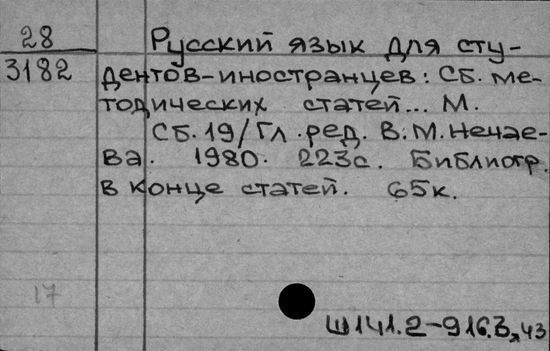 28 Русский язык для сту-
3182 дентов-иностранцев: Сб. ме-
тодических статей... М.
Сб. 19/Гл. ред. В.М. Нечае-
ва. 1980. 223с. Библиогр.
в конце статей. 65к.
17
Ш141.2-916.3,я43